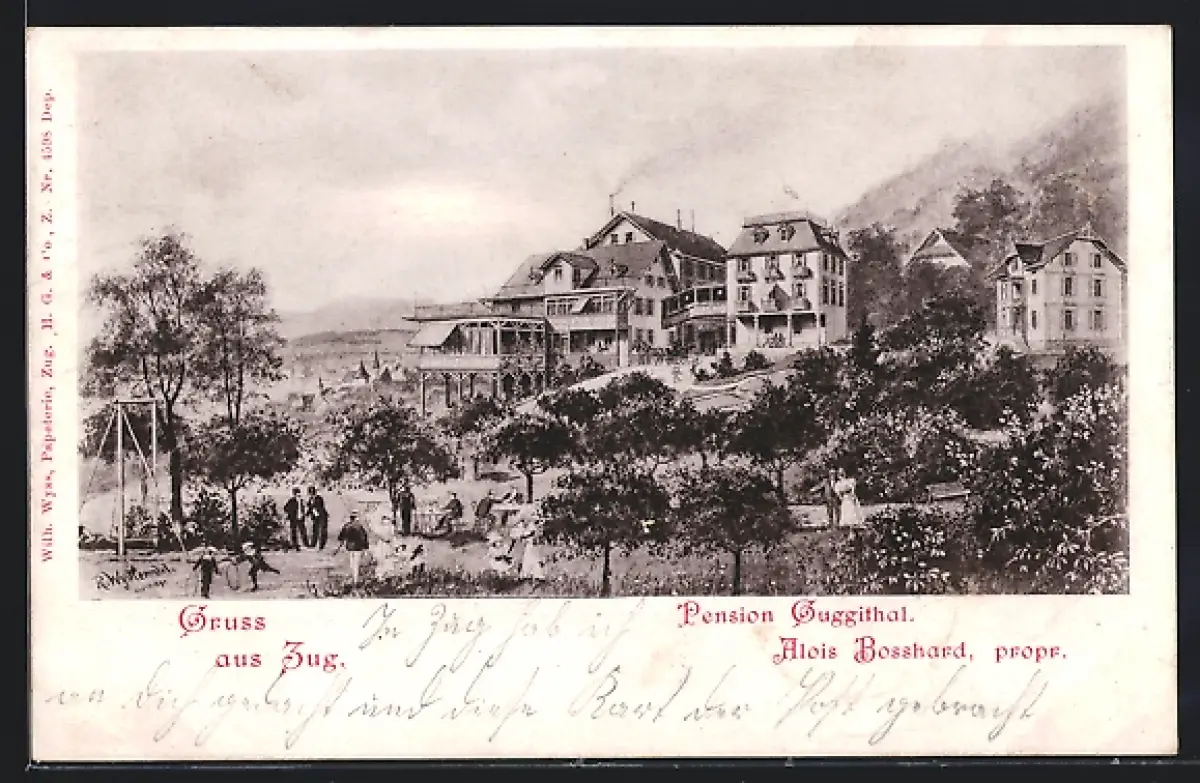 Wilh. Wyss, Papeterie, Zug. H. G. & Co., Z. Nr. 4598 Dep.
Gruss
aus Zug.
Pension Guggithal.
Alois Bosshard, propr.
In Zug hab ich
an Dich gedacht und diese Kart der Post gebracht